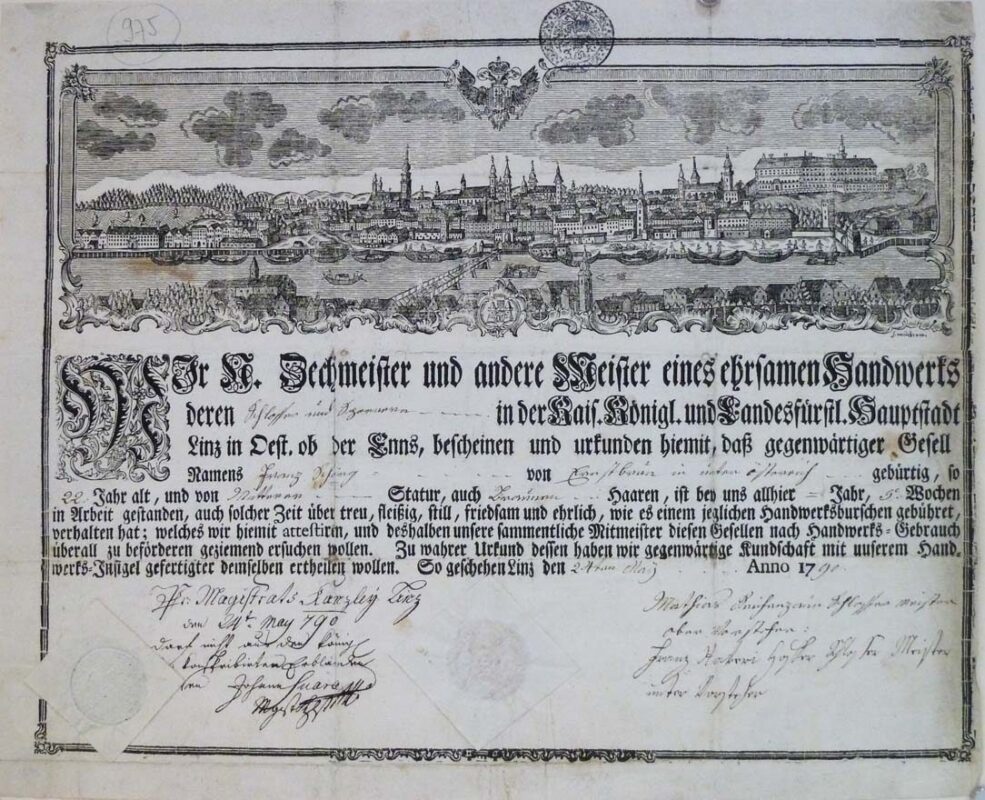 975
WIr N. Zechmeister und andere Meister eines ehrsamen Handwerks
deren Schlosser und in der Kais. Königl. und Landesfürstl. Hauptstadt
Linz in Oest. ob der Enns, bescheinen und urkunden hiemit, daß gegenwärtiger Gesell
Namens Franz von in unter österreich gebürtig, so
22 Jahr alt, und von Mitterer Statur, auch Braunen Haaren, ist bey uns allhier = Jahr, 5 Wochen
in Arbeit gestanden, auch solcher Zeit über treu, fleißig, still, friedsam und ehrlich, wie es einem jeglichen Handwerksburschen gebühret,
verhalten hat; welches wir hiemit attestirn, und deshalben unsere sammentliche Mitmeister diesen Gesellen nach Handwerks-Gebrauch
überall zu befördern geziemend ersuchen wollen. Zu wahrer Urkund dessen haben wir gegenwärtige Kundschaft mit unserem Hand-
werks-Insigel gefertigter demselben ertheilen wollen. So geschehen Linz den 24ten May Anno 1790
Pr: Magistrats Kanzley Linz
den 24t May 790
darf nicht aus den König
Johann
Mathias Schlosser meister
ober Vorsteher:
Franz Schlosser Meister
unter Vorsteher